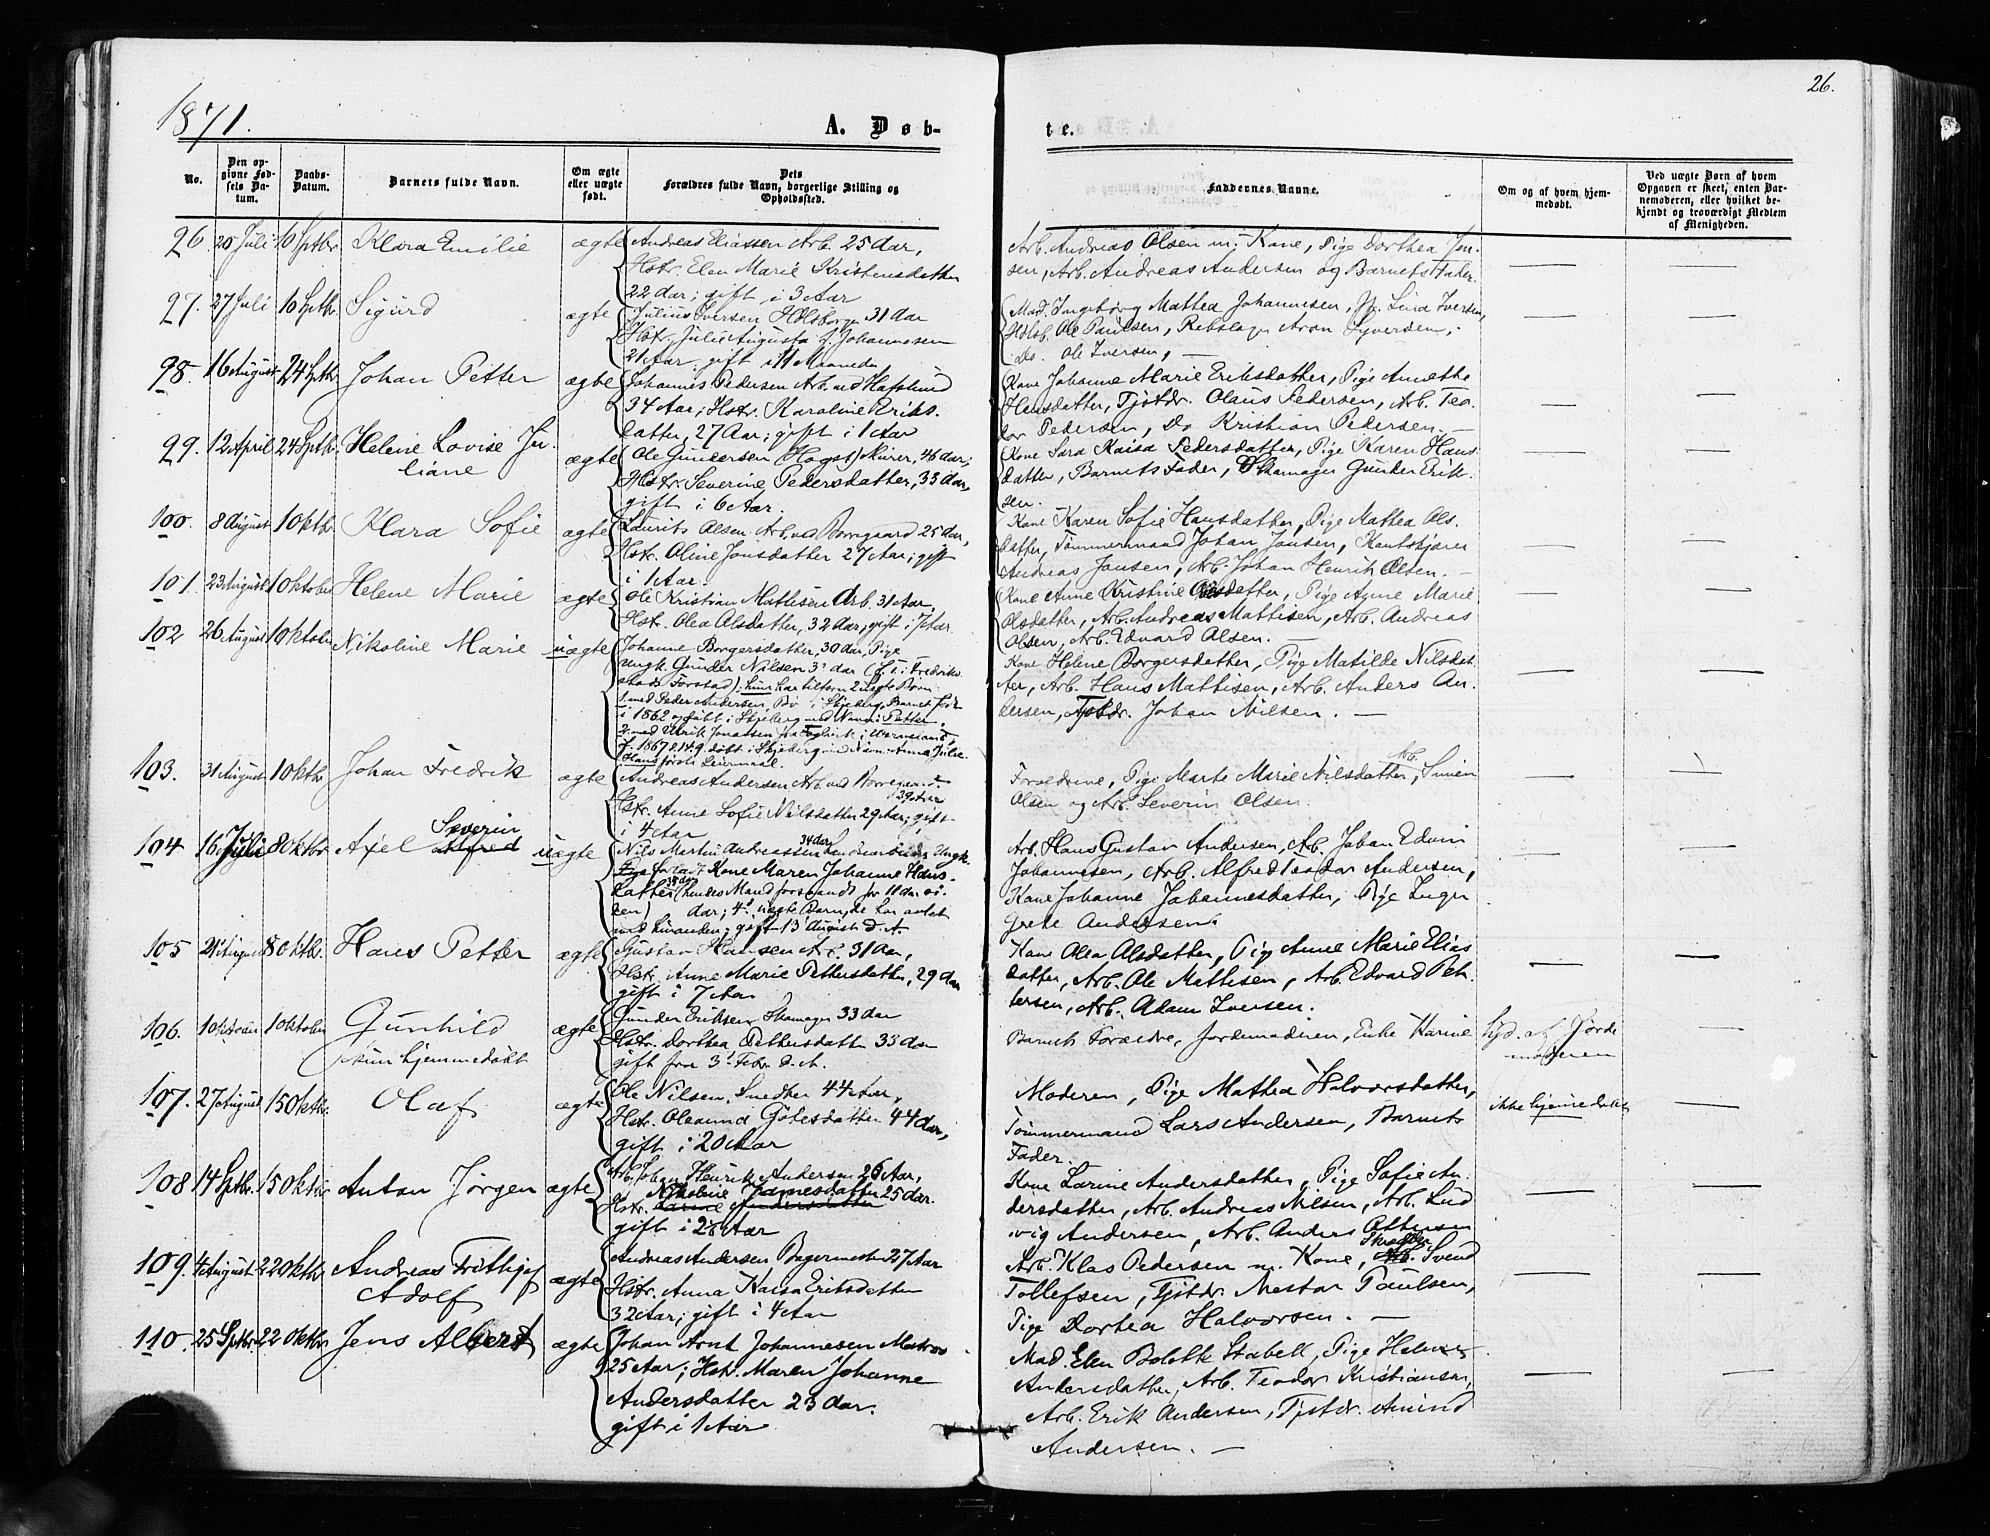 1871.
A. Døb-
te.
26.
No.
Den op-
givne Fød-
sels Da-
tum.
Daabs-
Datum.
Barnets fulde Navn.
Om ægte
eller uægte
født.
Dets
Forældres fulde Navn, borgerlige Stilling og
Opholdssted.
Faddernes Navne.
Om og af hvem hjem-
medøbt.
Ved uægte Børn af hvem
Opgaven er skeet, enten Bar-
nemoderen, eller hvilket be-
kjendt og troværdigt Medlem
af Menigheden.
96. 20 Juli 10 Sptbr. Klara Emilie ægte
Andreas Eliassen Arb. 25 Aar,
Hstr. Elen Marie Kristensdatter
22 Aar; gift i 3 Aar
Arb. Andreas Olsen m. Kone, Pige Dorthea Jen-
sen, Arb. Andreas Andersen og Barnets Fader.
97. 27 Juli 10 Sptbr Sigurd ægte
Julius Iversen 31 Aar
Hstr. Julie Augusta f. Johannesen
21 Aar. gift i 11 Maaneder
Mad. Ingeborg Mathea Johannesen, Lina Iversen,
Ole Paulsen, Rebslager Aron Syversen,
Do. Ole Iversen, —
98. 16 August 24 Sptbr Johan Petter ægte
Johannes Pedersen Arb. ved Hafslund
34 Aar; Hstr. Karoline Eriks-
datter, 27 Aar; gift i 1 Aar
Kone Johanne Marie Eriksdatter, Pige Anethe
Hansdatter, Tjstdr. Olaus Pedersen, Arb. Teo-
dor Pedersen, Do Kristian Pedersen. —
99. 12 April 24 Sptbr. Helene Lovise Ju-
liane ægte
Ole Gundersen (Høgst) Murer, 46 Aar,
Hstr. Severine Pedersdatter, 33 Aar,
gift i 6 Aar.
Kone Sara Kaisa Pedersdatter, Pige Karen Hans-
datter, Barnets Fader, Skomager Gunder Erik-
sen.
100. 8 August 1 Oktbr Klara Sofie ægte
Laurits Olsen Arb. ved Borregaard 25 Aar,
Hstr. Oline Jonsdatter 27 Aar; gift
i 1 Aar.
Kone Karen Sofie Hansdatter, Pige Mathea Ols-
datter, Tømmermand Johan Jansen,
Andreas Jansen, Arb. Johan Henrik Olsen. —
101. 23 August 1 Oktober Helene Marie ægte
Ole Kristian Mathisen Arb. 31 Aar,
Hstr. Olea Olsdatter, 32 Aar, gift i 7 Aar.
Kone Anne Kristine Olsdatter, Pige Anne Marie
Olsdatter, Arb. Andreas Mattisen, Arb. Andreas
Olsen, Arb. Edvard Olsen. —
102 26 August 1 Oktober Nikoline Marie uægte
Johanne Borgersdatter, 30 Aar, Pige
Ungk. Gunder Nilsen 31 Aar (F. i Fredriks-
stads Forstad); hun har tilforn 2 uægte Børn:
1 med Peder Andersen, Bø i Skjeberg, Barnet født
i 1862 og døbt i Skjeberg med Navn: Petter,
2 med Ulrik Jonassen fra
f. 1867 døbt i Skjeberg med Navn: Anna Julie.
Hans første Leiermaal.
Kone Helene Borgersdatter, Pige Matilde Nilsdat-
ter, Arb. Hans Mattisen, Arb. Anders An-
dersen, Tjstdr. Johan Nilsen. —
103. 31 August 1 Oktbr Johan Fredrik ægte
Andreas Andersen Arb. ved Borregaard.
29 Aar
Hstr. Anne Sofie Nilsdatter 29 Aar; gift
i 4 Aar
Forældrene, Pige Marte Marie Nilsdatter, Arb. Simen
Olsen og Arb. Severin Olsen.
104 16 Juli 8 Oktbr Axel Severin
Alfred uægte
Nils Martin Andreassen 34 Aar Ungk.
forladt Kone Maren Johanne Hans-
datter 38 Aar (hendes Mand forsvandt for 11 Aar si-
den) Aar; 4de uægte Barn, de har avlet
med hinanden; gift 13 August d. A.
Arb. Hans Gustav Andersen, Arb. Johan Edvin
Johannesen, Arb. Alfred Teodor Andersen,
Kone Johanne Johannesdatter, Pige Inger
Grete Andersen.
105 21 August 8 Oktbr. Hans Petter ægte
Gustav Hansen Arb. 31 Aar,
Hstr. Anne Marie Pettersdatter, 29 Aar
gift i 7 Aar
Kone Olea Olsdatter, Pige Anne Marie Elias-
datter, Arb. Ole Mattisen, Arb. Edvard Pet-
tersen, Arb. Adam Iversen.
106. 1 Oktober 1 Oktober Gunhild
kun hjemmedøbt ægte
Gunder Eriksen Skomager 33 Aar
Hstr. Dorthea Pettersdatter 33 Aar
gift fra 3 Febr. d. A.
Barnets Forældre, Jordemoderen, Enke Karine
hjd. af Jorde-
moderen
107. 27 August 15 Oktbr. Olaf ægte
Ole Nilsen, 44 Aar,
Hstr. Oleana Gotesdatter 44 Aar,
gift i 20 Aar
Moderen, Pige Mathea Halvorsdatter,
Tømmermand Lars Andersen, Barnets
Fader.
ikke hjemmedøbt
108 14 Sptbr. 15 Oktbr Anton Jørgen ægte
Arb. Johan Henrik Andersen 26 Aar,
Nikoline Hansdatter 25 Aar.
Hstr. Larine Andersdatter
gift i 2 Aar
Kone Larine Andersdatter, Pige Sofie An-
dersdatter, Arb. Andreas Nilsen, Arb. Lud-
vig Andersen, Arb. Anders Ottersen
109. 4 August 22 Oktbr Andreas Frithjof
Adolf ægte
Andreas Andersen 27 Aar
Hstr. Anna Kaisa Eriksdatter
32 Aar; gift i 4 Aar
Arb. Klas Pedersen m. Kone, Skrædder Arb. Svend
Tollefsen, Tjstdr. Nestor Paulsen,
Pige Dortea Halvorsen. —
110. 25 Sptbr 22 Oktbr Jens Albert ægte
Johan Arnt Johannesen Matros
25 Aar; Hstr. Maren Johanne
Andersdatter 23 Aar.
gift i 1 Aar
Mad. Elen Bolette Stabell, Pige Helene
Andersdatter, Arb. Teodor Kristiansen,
Arb. Erik Andersen, Tjstdr. Amund
Andersen. —